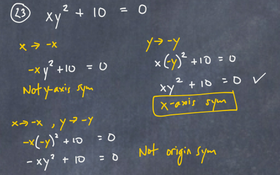 23 xy² + 10 = 0
x → -x
-xy² + 10 = 0
Not y-axis sym
y → -y
x(-y)² + 10 = 0
xy² + 10 = 0 ✓
x-axis sym
x → -x , y → -y
-x(-y)² + 10 = 0
-xy² + 10 = 0
Not origin sym